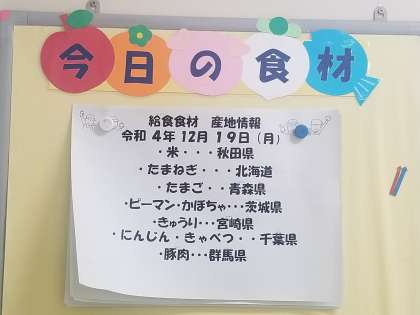 今日の食材
給食食材　産地情報
令和 4年 12月 19日（月）
・米・・・秋田県
・たまねぎ・・・北海道
・たまご・・青森県
・ピーマン・かぼちゃ・・・茨城県
・きゅうり・・・宮崎県
・にんじん・きゃべつ・・千葉県
・豚肉・・・群馬県